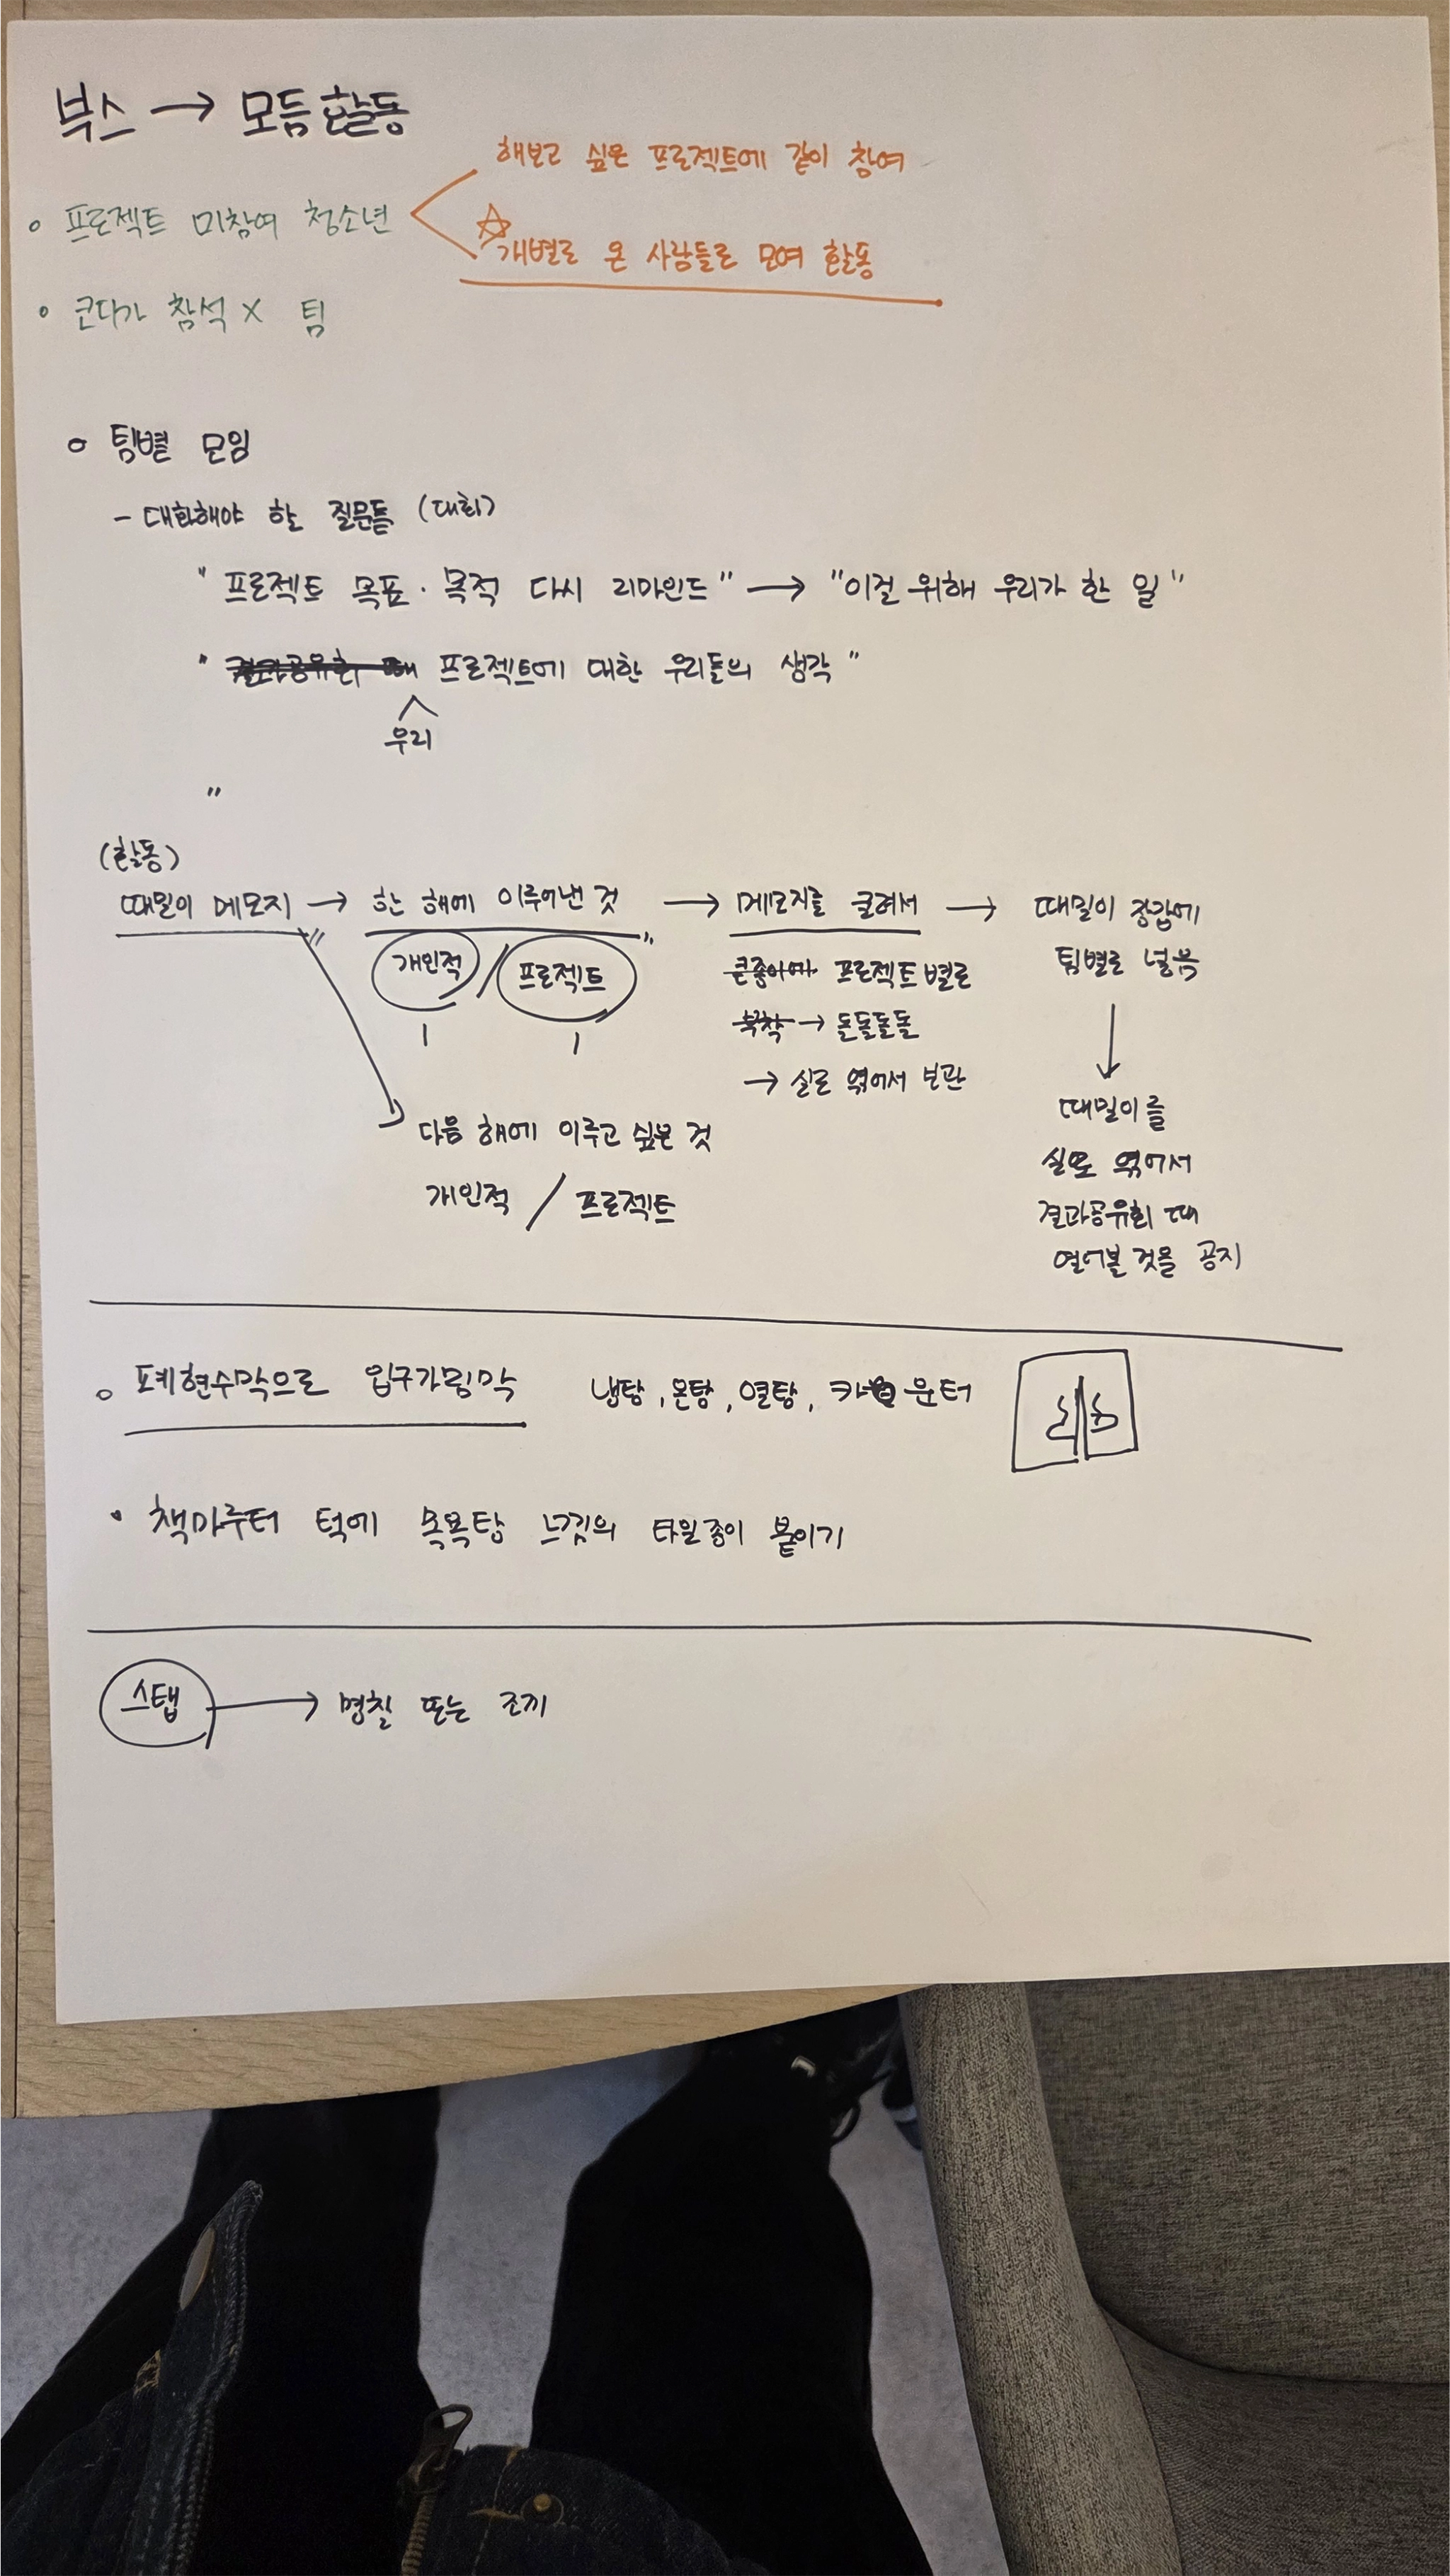 부스 → 모듬활동
해보고 싶은 프로젝트에 같이 참여
◦ 프로젝트 미참여 청소년
☆ 개별로 온 사람들로 모여 활동
◦ 코다가 참석 X 팀
◦ 팀별 모임
- 대화해야 할 질문들 (대화)
" 프로젝트 목표 · 목적 다시 리마인드 " → " 이걸 위해 우리가 한 일 "
" 결과공유회 때 프로젝트에 대한 우리들의 생각 "
우리
"
(활동)
때밀이 메모지 → 한 해에 이루어낸 것 → 메모지를 굴려서 → 때밀이 장갑에
개인적 / 프로젝트
큰종이에 프로젝트별로
팀별로 넣음
부착 → 돌돌돌돌
→ 실로 엮어서 보관
때밀이를
실로 엮어서
결과공유회 때
열어볼 것을 공지
다음 해에 이루고 싶은 것
개인적 / 프로젝트
◦ 폐현수막으로 입구가림막 냉탕, 온탕, 열탕, 카운터
• 책마루터 턱에 목욕탕 느낌의 타일종이 붙이기
스탭 → 명찰 또는 조끼